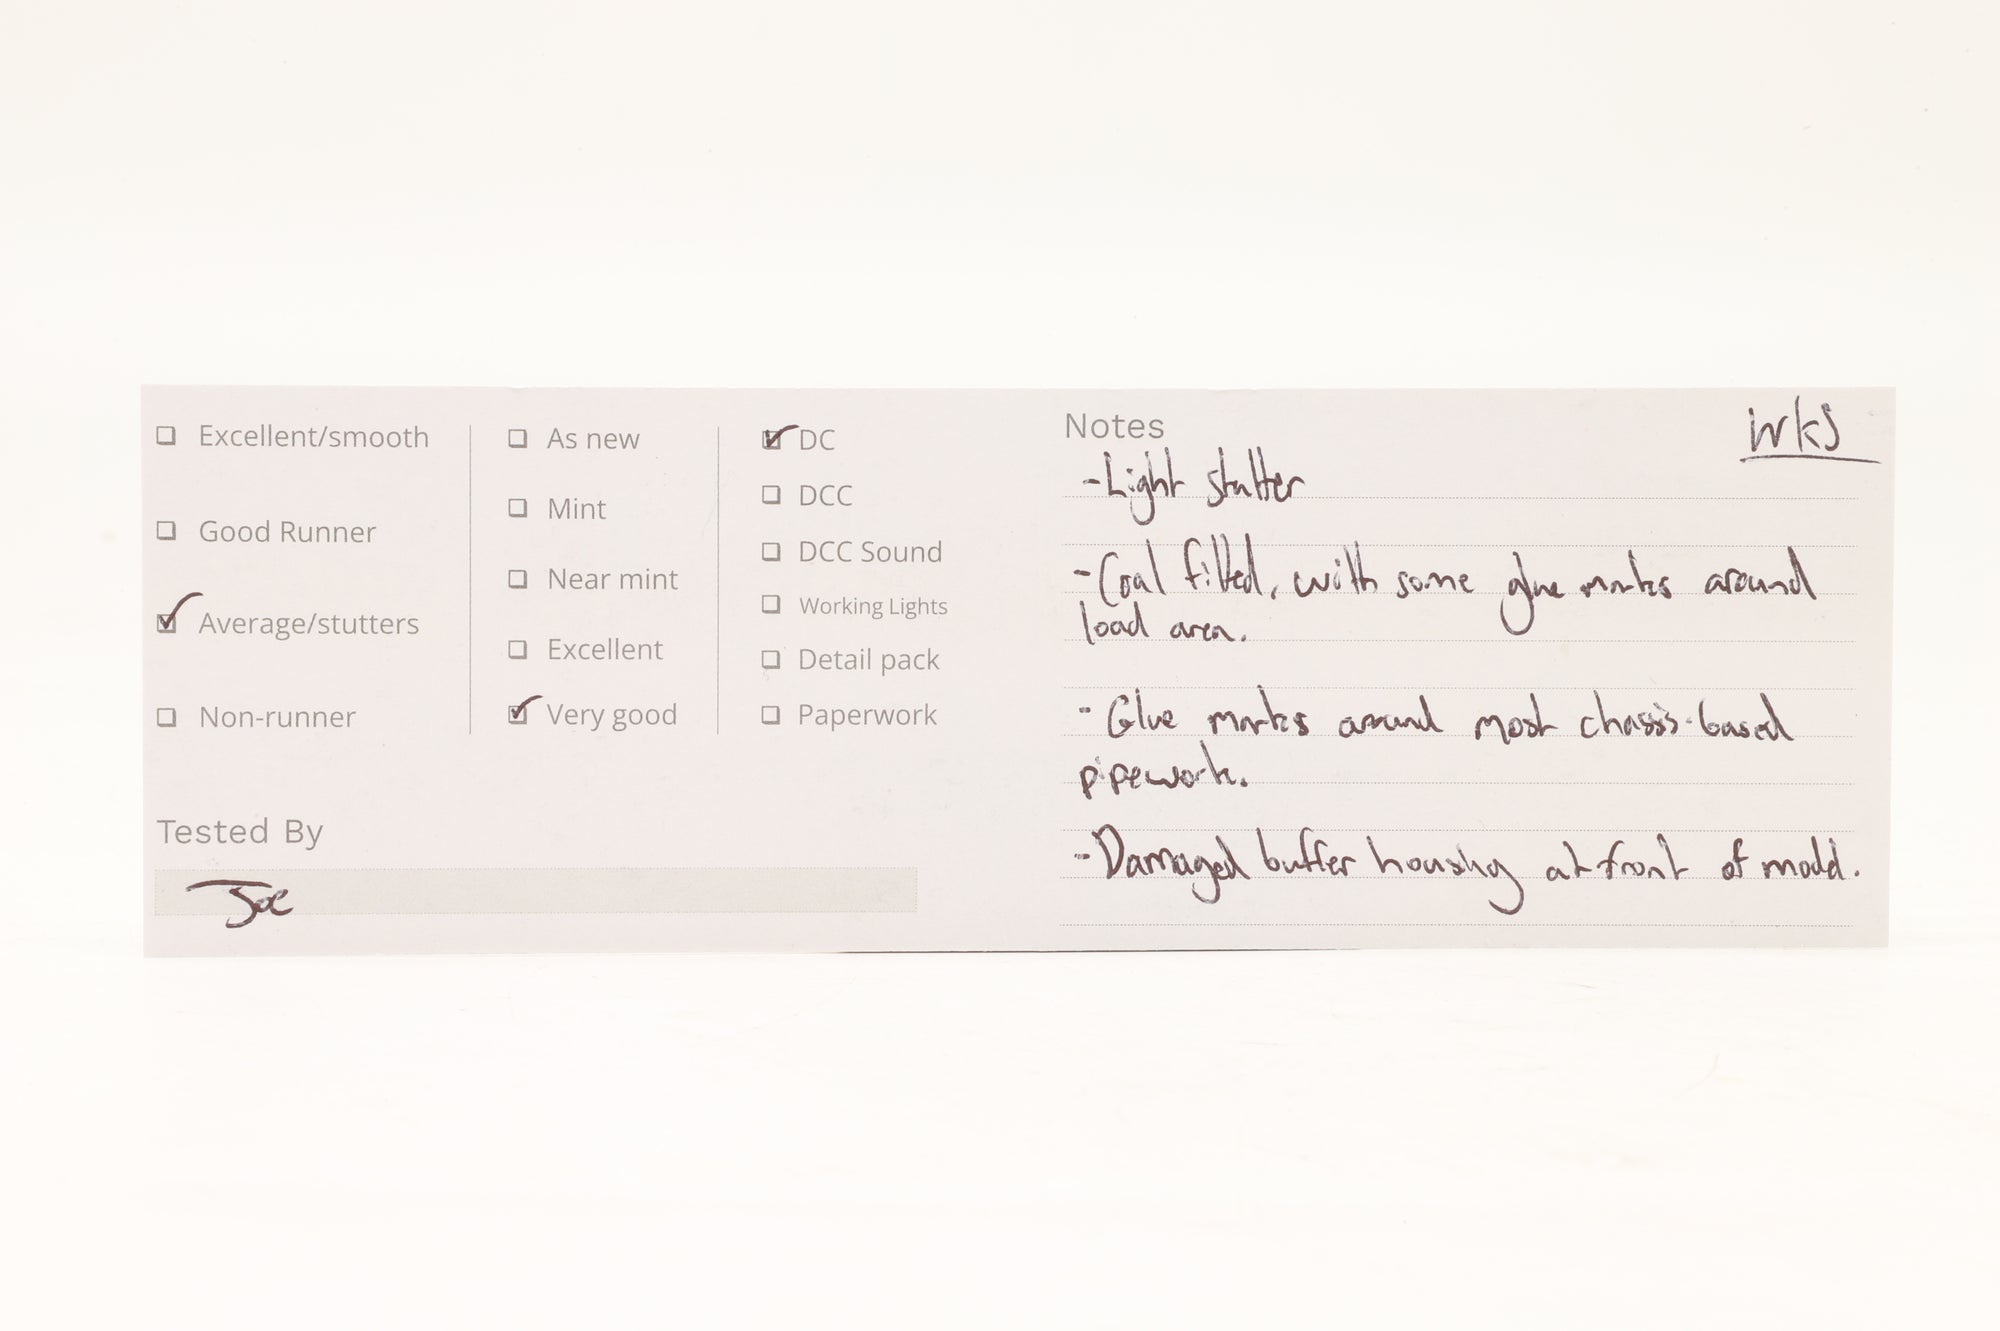 Excellent/smooth
Good Runner
Average/stutters
Non-runner
As new
Mint
Near mint
Excellent
Very good
DC
DCC
DCC Sound
Working Lights
Detail pack
Paperwork
Tested By
Joe
Notes
wks
-Light stutter
-Coal fitted, with some glue marks around
load area.
-Glue marks around most chassis-based
pipework.
-Damaged buffer housing at front of model.